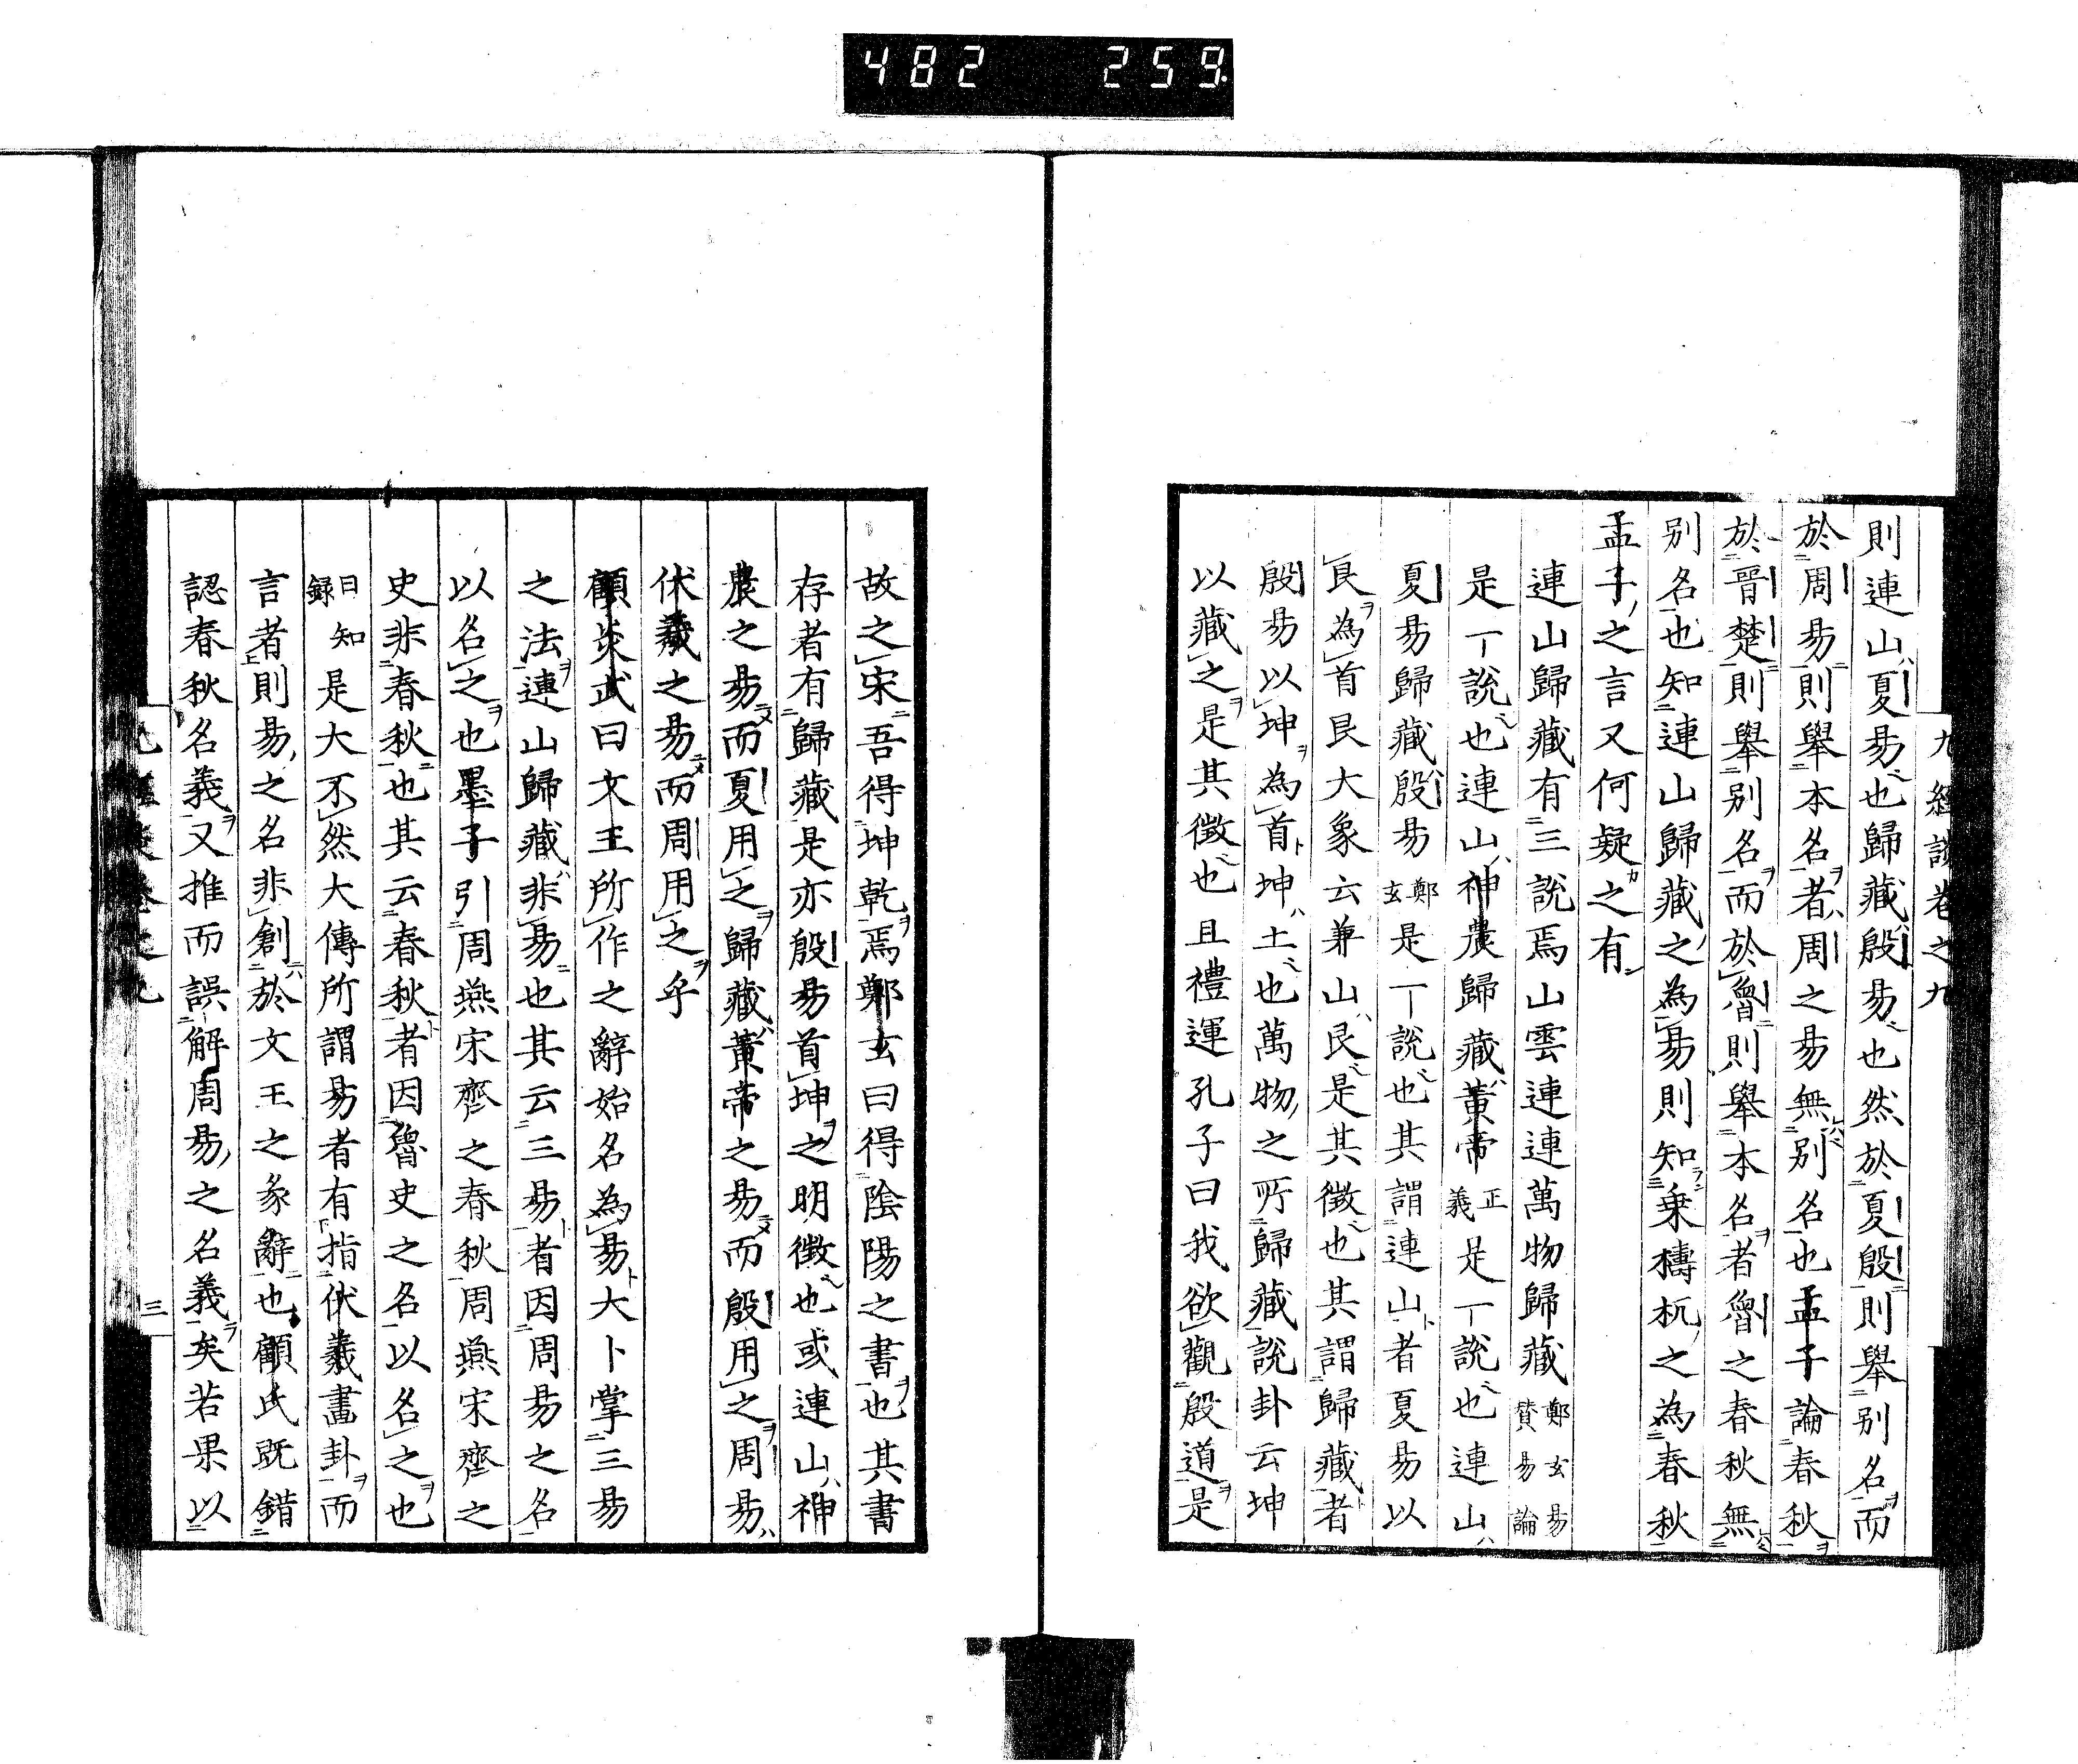 482 259
九經談卷之九
則連山夏易也歸藏殷易也然於夏殷則舉別名而
於周易則舉本名者周之易無別名也孟子論春秋
於晉楚則舉別名而於魯則舉本名者魯之春秋無
別名也知連山歸藏之為易則知乘檮杌之為春秋
孟子之言又何疑之有
連山歸藏有三說焉山雲連連萬物歸藏鄭玄易贊易論
是一說也連山神農歸藏黃帝正義是一說也連山
夏易歸藏殷易鄭玄是一說也其謂連山者夏易以
艮為首艮大象云兼山艮是其徵也其謂歸藏者
殷易以坤為首坤土也萬物之所歸藏說卦云坤
以藏之是其徵也且禮運孔子曰我欲觀殷道是
故之宋吾得坤乾焉鄭玄曰得陰陽之書也其書
存者有歸藏是亦殷易首坤之明徵也或連山神
農之易而夏用之歸藏黃帝之易而殷用之周易
伏羲之易而周用之乎
顧炎武曰文王所作之辭始名為易大卜掌三易
之法連山歸藏非易也其云三易者因周易之名
以名之也墨子引周燕宋齊之春秋周燕宋齊之
史非春秋也其云春秋者因魯史之名以名之也
日知錄是大不然大傳所謂易者有指伏羲畫卦而
言者則易之名非創於文王之彖辭也顧氏既錯
認春秋名義又推而誤解周易之名義矣若果以
三